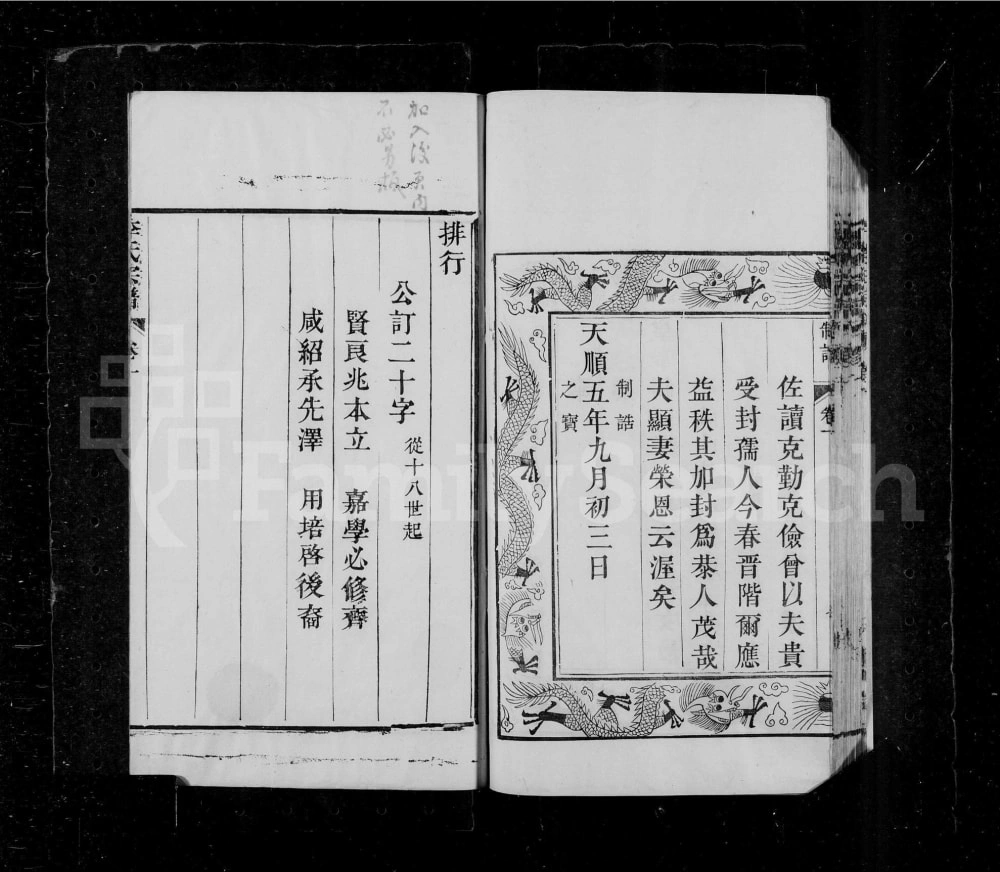 制誥
卷一
佐讀克勤克儉曾以夫貴
受封孺人今春晋階爾應
益秩其加封爲恭人茂哉
夫顯妻榮恩云渥矣
制誥
天順五年九月初三日
之寶
加入後頁內
不必另板
排行
公訂二十字 從十八世起
賢良兆本立 嘉學必修齊
咸紹承先澤 用培啓後裔
李氏宗譜
卷一
FamilySearch